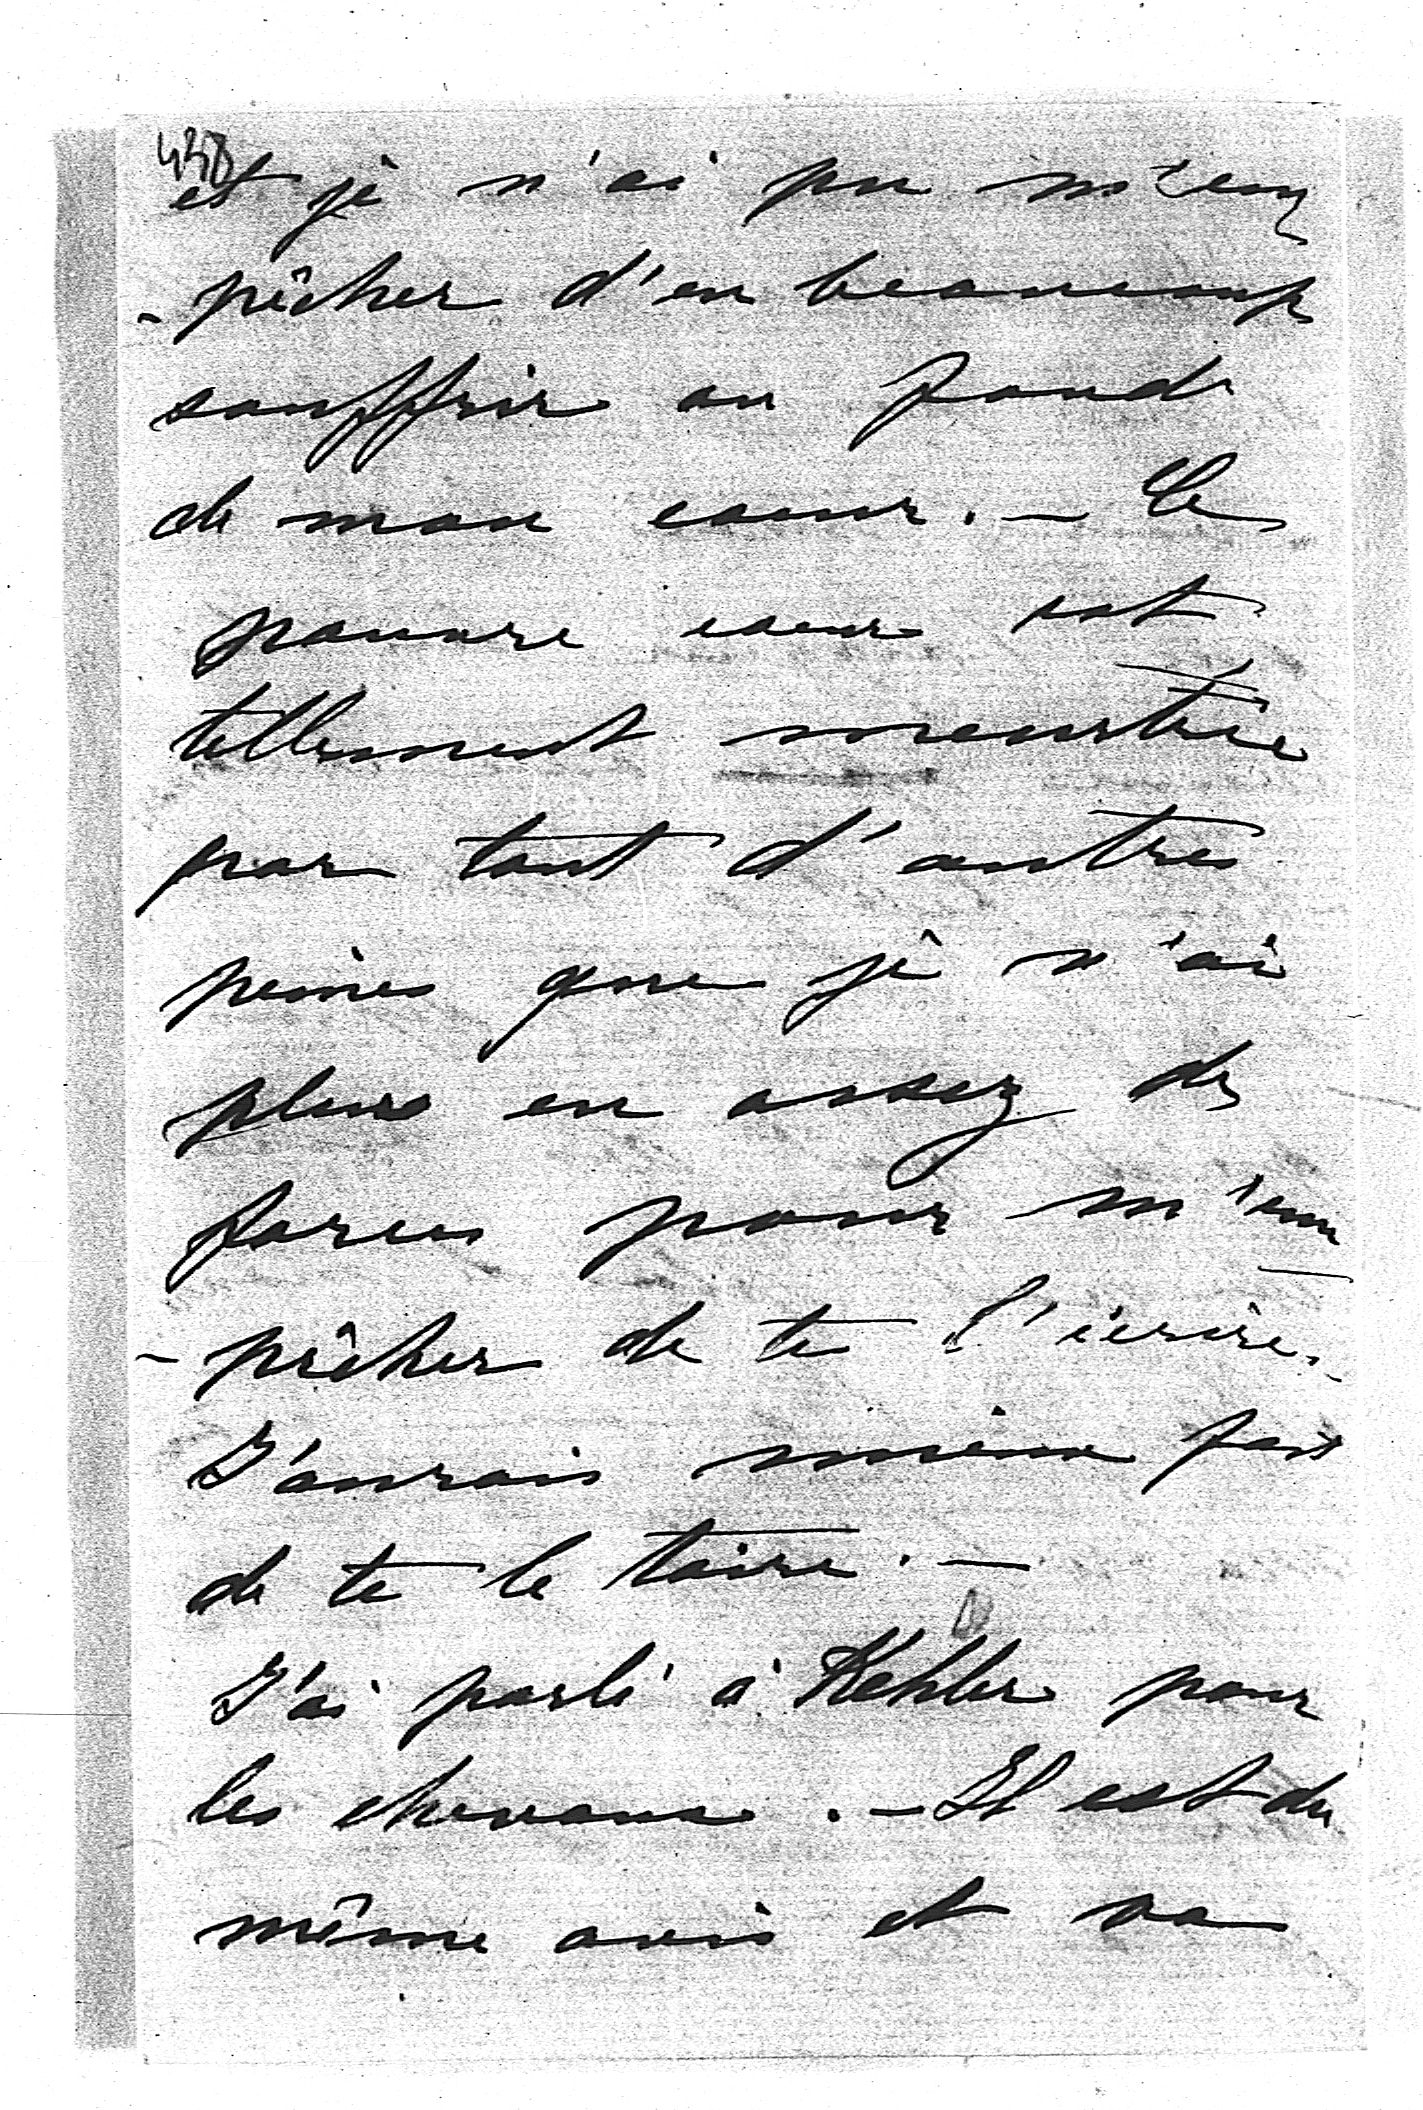 438
et je n'ai pu m'em
- pêcher d'en beaucoup
souffrir au fond
de mon coeur. - Ce
pauvre coeur est
tellement meurtrie
par tant d'autres
peines que je n'ai
plus eu assez de
forces pour m'em
- pêcher de te l'écrire. -
J'aurais mieux fait
de te le taire. -
J'ai parlé à Kehler pour
les chevaux. - Il est du
même avis et va